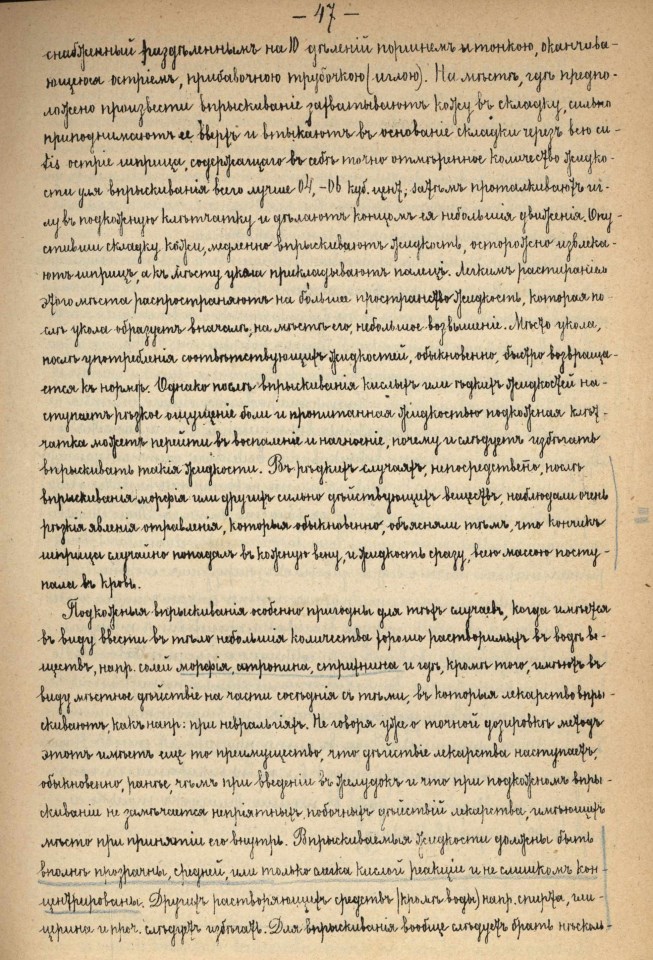 — 47 —
снабженный раздѣленнымъ на 10 дѣленій поршнемъ и тонкою, оканчива-
ющеюся остріемъ, прибавочною трубочкою (иглою). На мѣстѣ, гдѣ предпо-
ложено произвести впрыскиваніе захватываютъ кожу въ складку, сильно
приподнимаютъ ее вверхъ и втыкаютъ въ основаніе складки черезъ всю cu-
tis остріе шприца, содержащаго въ себѣ точно отмѣренное количество жидко-
сти для впрыскиванія всего лучше 04,-06 куб. цент; затѣмъ проталкиваютъ иг-
лу въ подкожную клѣтчатку и дѣлаютъ концомъ ея небольшія движенія. Опу-
стивши складку кожи, медленно впрыскиваютъ жидкость, осторожно извлека-
ютъ шприцъ, а къ мѣсту укола прикладываютъ палецъ. Легкимъ растираніемъ
этого мѣста распространяютъ на большее пространство жидкость, которая по-
слѣ укола образуетъ вначалѣ, на мѣстѣ его, небольшое возвышеніе. Мѣсто укола,
послѣ употребленія соотвѣтствующихъ жидкостей, обыкновенно, быстро возвраща-
ется къ нормѣ. Однако послѣ впрыскиванія кислыхъ или ѣдкихъ жидкостей на-
ступаетъ рѣзкое ощущеніе боли и пропитанная жидкостью подкожная клѣт-
чатка можетъ перейти въ воспаленіе и нагноеніе, почему и слѣдуетъ избѣгать
впрыскивать такія жидкости. Въ рѣдкихъ случаяхъ, непосредственно, послѣ
впрыскиванія морфія или другихъ сильно дѣйствующихъ веществъ, наблюдали очень
рѣзкія явленія отравленія, которыя обыкновенно, объясняли тѣмъ, что кончикъ
шприца случайно попадалъ въ кожную вену, и жидкость сразу, всею массою посту-
пала въ кровь.
Подкожныя впрыскиванія особенно пригодны для тѣхъ случаевъ, когда имѣется
въ виду ввести въ тѣло небольшія количества хорошо растворимыхъ въ водѣ ве-
ществъ, напр. солей морфія, атропина, стрихнина и гдѣ, кромѣ того, имѣютъ въ
виду мѣстное дѣйствіе на части сосѣднія съ тѣми, въ которыя лекарство впры-
скиваютъ, какъ напр: при невралгіяхъ. Не говоря уже о точной дозировкѣ методъ
этотъ имѣетъ еще то преимущество, что дѣйствіе лекарства наступаетъ,
обыкновенно, ранѣе, чѣмъ при введеніи въ желудокъ и что при подкожномъ впры-
скиваніи не замѣчается непріятныхъ, побочныхъ дѣйствій лекарства, имѣющихъ
мѣсто при принятіи его внутрь. Впрыскиваемыя жидкости должны быть
вполнѣ прозрачны, средней, или только слегка кислой реакціи и не слишкомъ кон-
центрированы. Другихъ растворяющихъ средствъ (кромѣ воды) напр. спирта, гли-
церина и проч. слѣдуетъ избѣгать. Для впрыскиванія вообще слѣдуетъ брать нѣсколь-